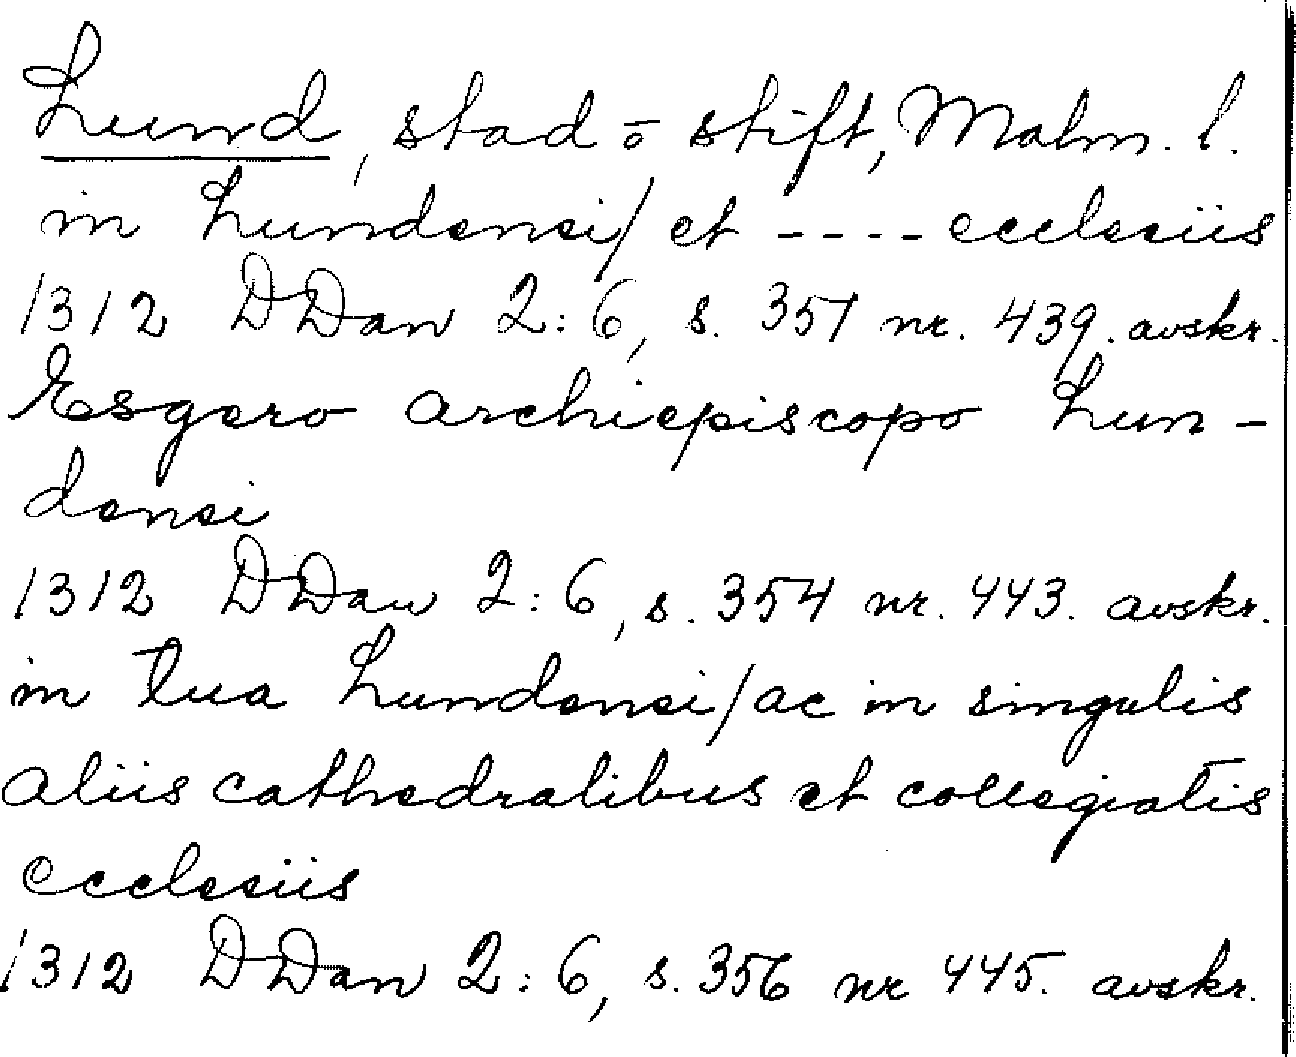 Lund, stad o stift, Malm. l.
in Lundensi/ et ---- ecclesiis
1312 DDan 2:6, s. 351 nr. 439. avskr.
Esgero archiepiscopo Lun-
densi
1312 DDan 2:6, s. 354 nr. 443. avskr.
in tua Lundensi/ac in singulis
aliis cathedralibus et collegiatis
ecclesiis
1312 DDan 2:6, s. 356 nr 445. avskr.